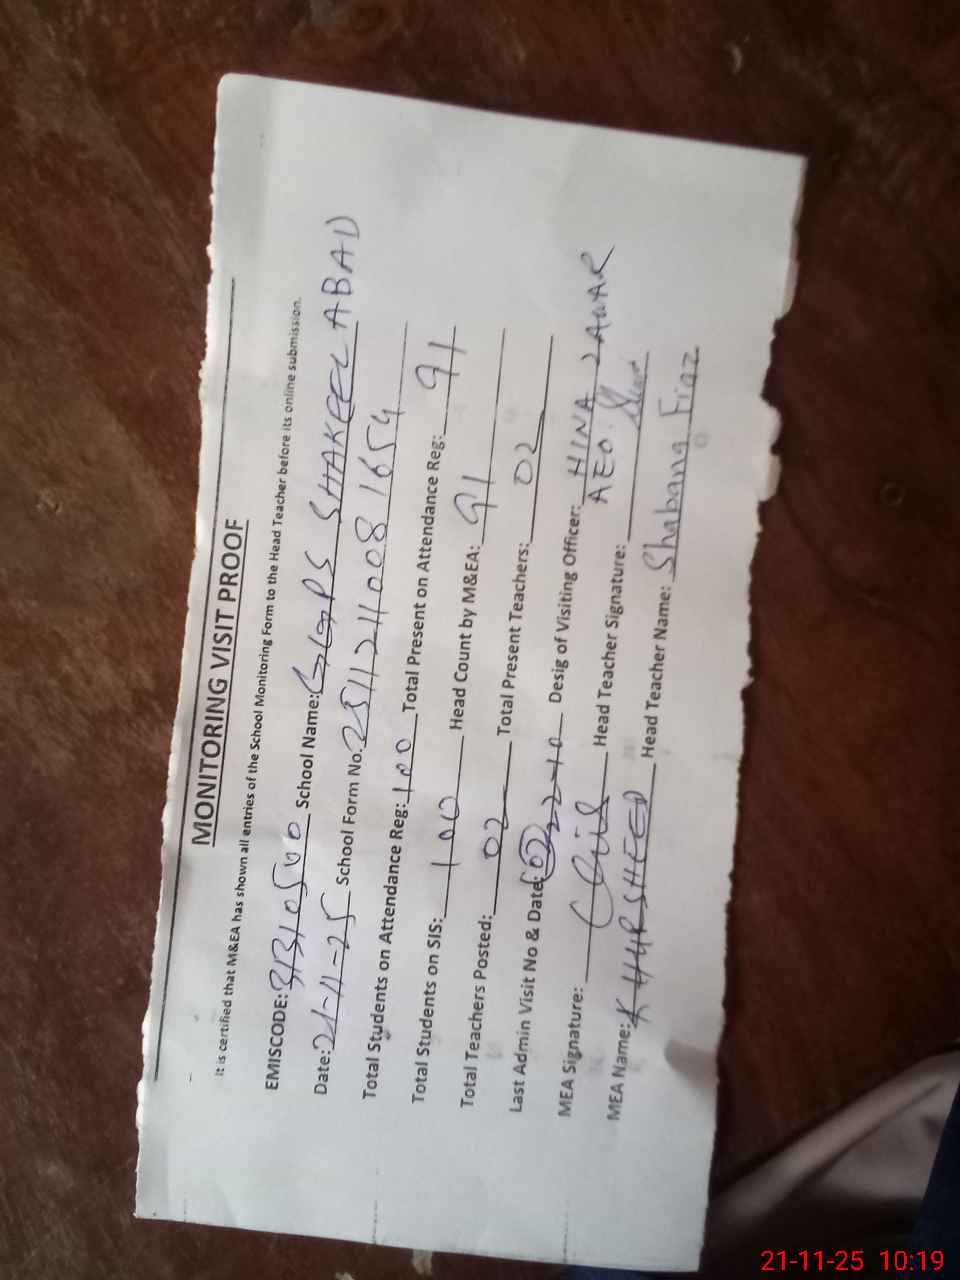 MONITORING VISIT PROOF
It is certified that M&EA has shown all entries of the School Monitoring Form to the Head Teacher before its online submission.
EMISCODE: 31310500 School Name: GGPS SHAKEEL ABAD
Date: 21-11-25 School Form No. 25112110081654
Total Students on Attendance Reg: 100 Total Present on Attendance Reg: 91
Total Students on SIS: 100 Head Count by M&EA: 91
Total Teachers Posted: 02 Total Present Teachers: 02
Last Admin Visit No & Date: 02 22-10 Desig of Visiting Officer: HINA
AEO
MEA Signature: Head Teacher Signature:
MEA Name: KHURSHEED Head Teacher Name: Shabana Fiaz
21-11-25 10:19